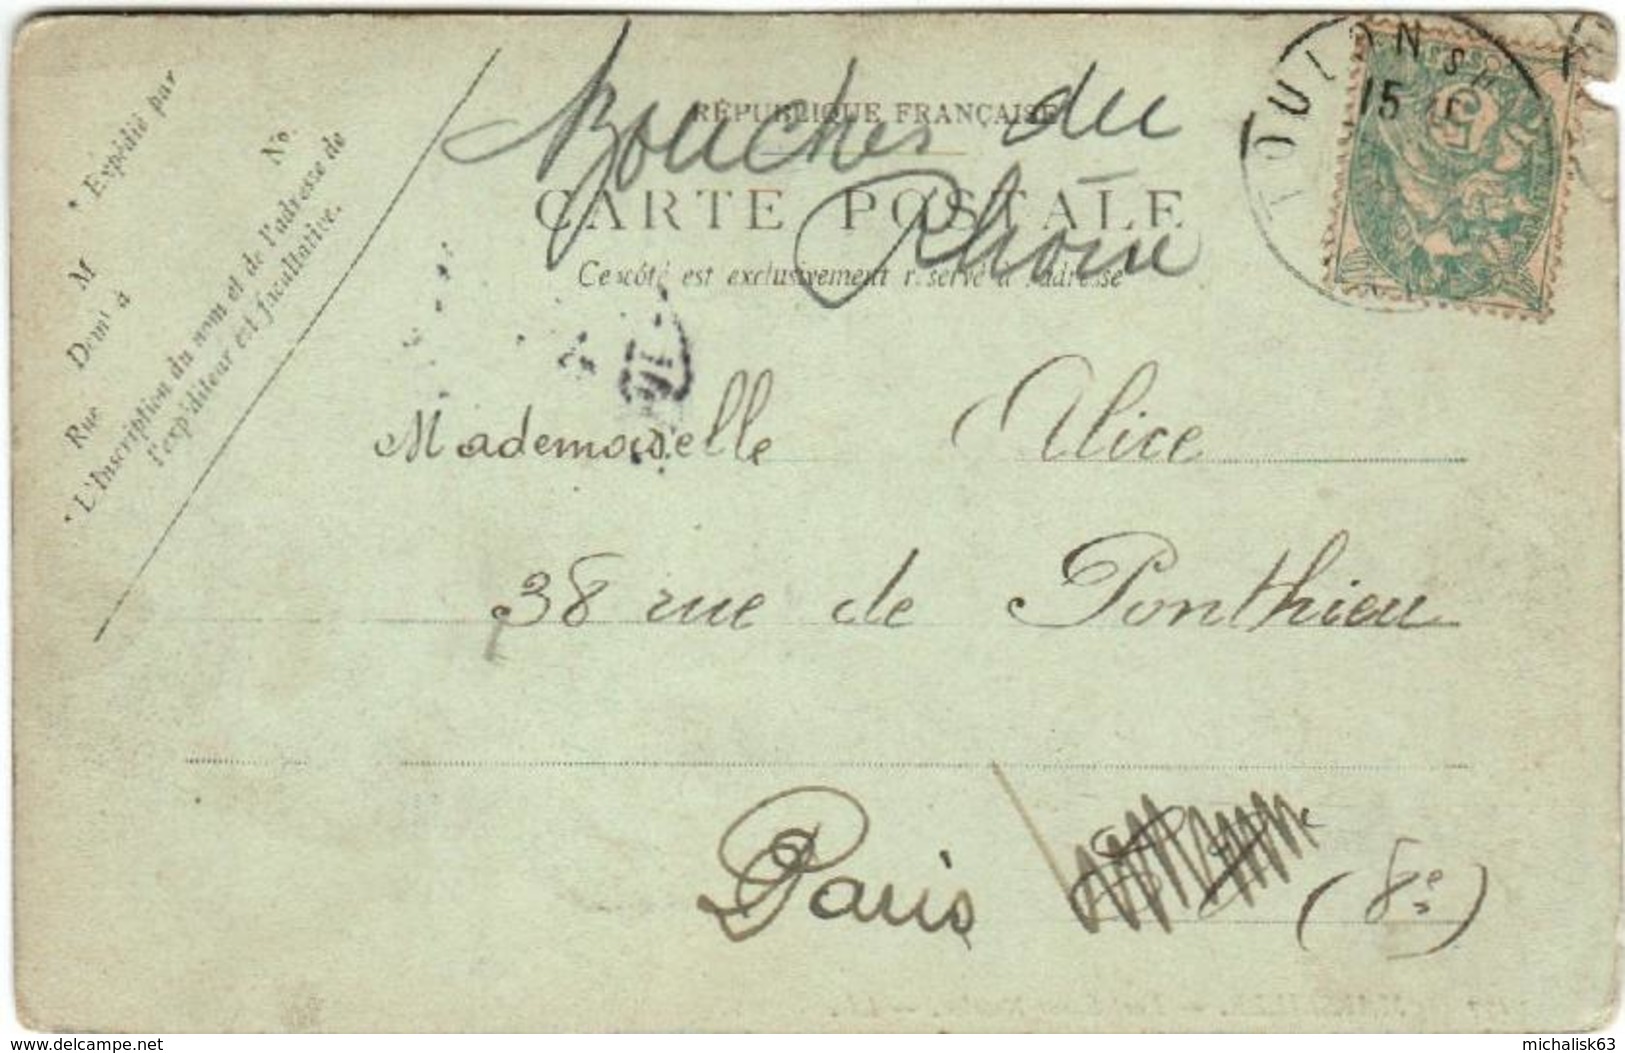 Bouches du
Rhône
RÉPUBLIQUE FRANÇAISE
CARTE POSTALE
Ce côté est exclusivement réservé à l'adresse
TOULON S
15
5
Expédié par
M
Dem^t à
Rue
No.
L'Inscription du nom et de l'adresse de
l'expéditeur est facultative.
Mademoiselle Alice
38 rue de Ponthieu
Paris (8e)
delcampe.net
michalisk63